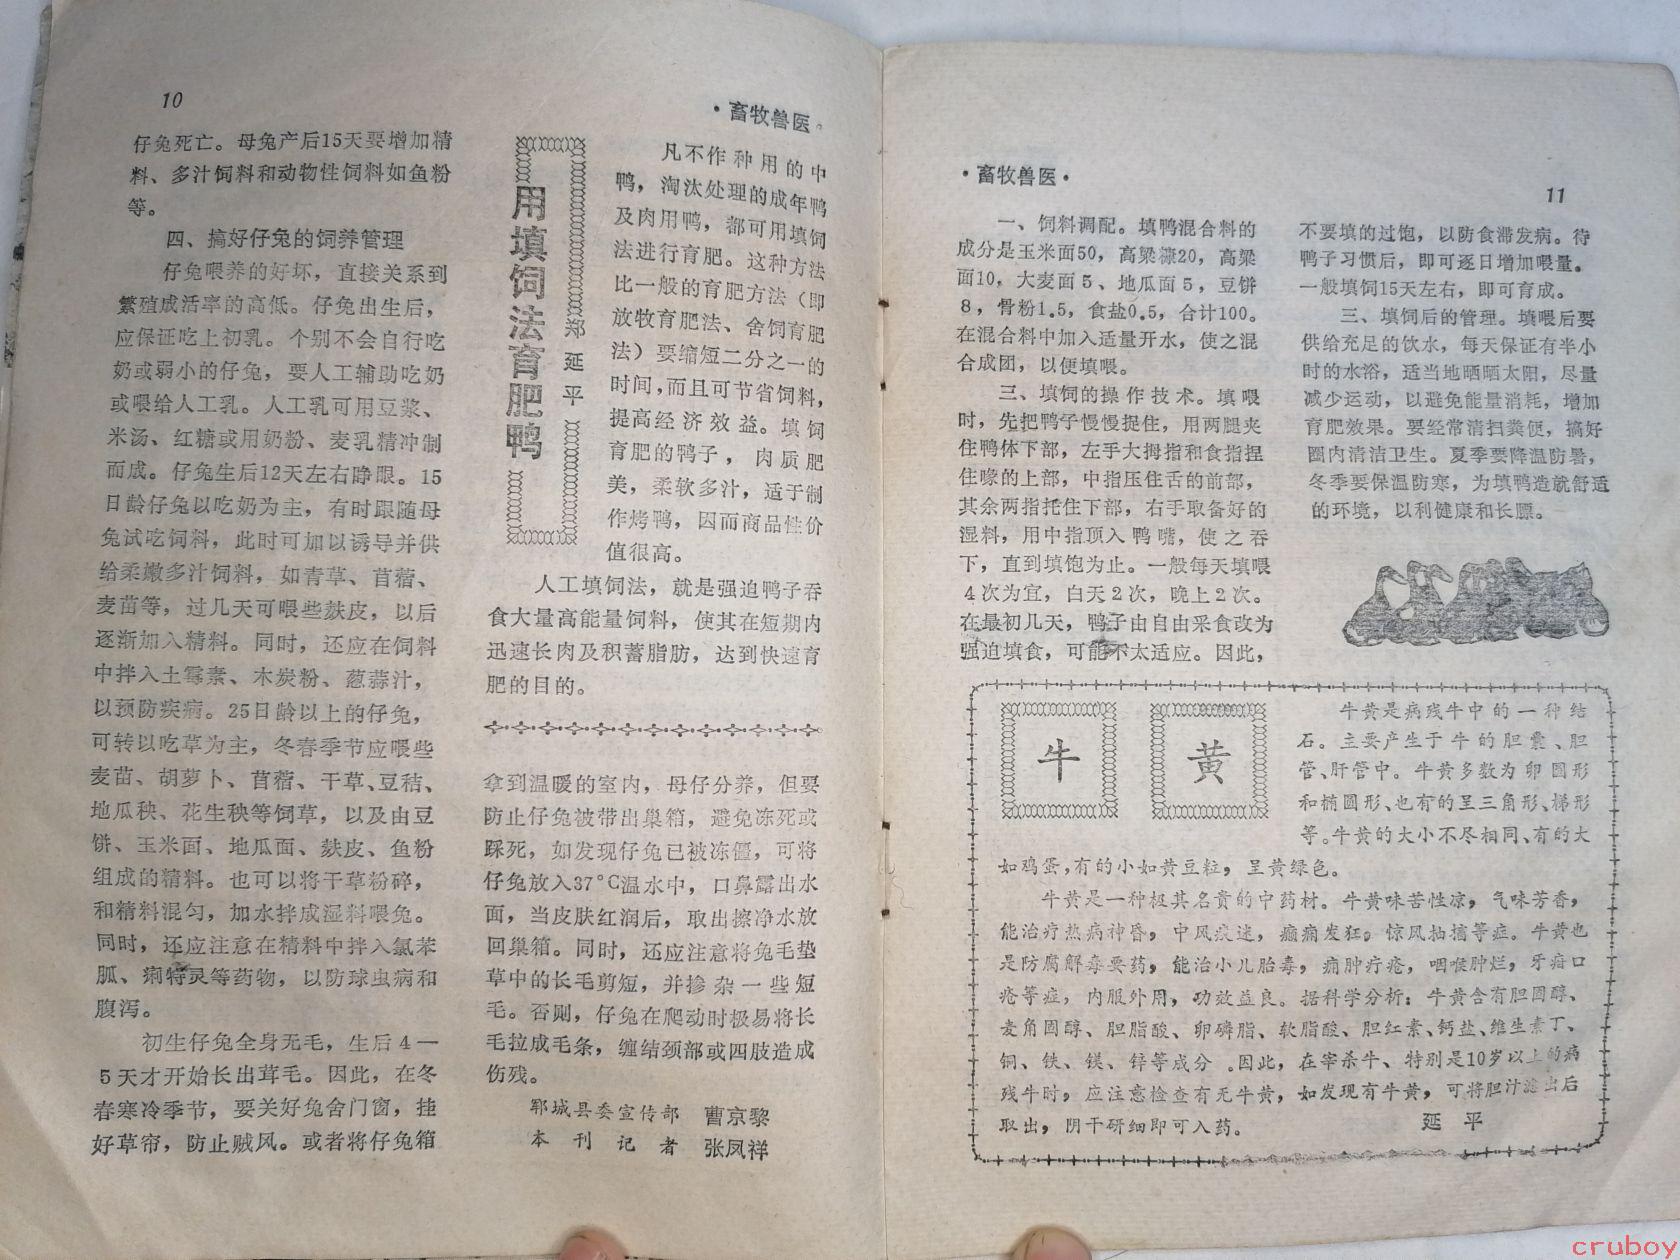 10
·畜牧兽医。
仔兔死亡。母兔产后15天要增加精
料、多汁饲料和动物性饲料如鱼粉
等。
四、搞好仔兔的饲养管理
仔兔喂养的好坏，直接关系到
繁殖成活率的高低。仔兔出生后，
应保证吃上初乳。个别不会自行吃
奶或弱小的仔兔，要人工辅助吃奶
或喂给人工乳。人工乳可用豆浆、
米汤、红糖或用奶粉、麦乳精冲制
而成。仔兔生后12天左右睁眼。15
日龄仔兔以吃奶为主，有时跟随母
兔试吃饲料，此时可加以诱导并供
给柔嫩多汁饲料，如青草、苜蓿、
麦苗等，过几天可喂些麸皮，以后
逐渐加入精料。同时，还应在饲料
中拌入土霉素、木炭粉、葱蒜汁，
以预防疾病。25日龄以上的仔兔，
可转以吃草为主，冬春季节应喂些
麦苗、胡萝卜、苜蓿、干草、豆秸、
地瓜秧、花生秧等饲草，以及由豆
饼、玉米面、地瓜面、麸皮、鱼粉
组成的精料。也可以将干草粉碎，
和精料混匀，加水拌成湿料喂兔。
同时，还应注意在精料中拌入氯苯
胍、痢特灵等药物，以防球虫病和
腹泻。
初生仔兔全身无毛，生后4—
5天才开始长出茸毛。因此，在冬
春寒冷季节，要关好兔舍门窗，挂
好草帘，防止贼风。或者将仔兔箱
拿到温暖的室内，母仔分养，但要
防止仔兔被带出巢箱，避免冻死或
踩死，如发现仔兔已被冻僵，可将
仔兔放入37°C温水中，口鼻露出水
面，当皮肤红润后，取出擦净水放
回巢箱。同时，还应注意将兔毛垫
草中的长毛剪短，并掺杂一些短
毛。否则，仔兔在爬动时极易将长
毛拉成毛条，缠结颈部或四肢造成
伤残。
郓城县委宣传部 曹京黎
本刊记者 张凤祥
用填饲法育肥鸭
郑延平
凡不作种用的中
鸭，淘汰处理的成年鸭
及肉用鸭，都可用填饲
法进行育肥。这种方法
比一般的育肥方法（即
放牧育肥法、舍饲育肥
法）要缩短二分之一的
时间，而且可节省饲料，
提高经济效益。填饲
育肥的鸭子，肉质肥
美，柔软多汁，适于制
作烤鸭，因而商品性价
值很高。
人工填饲法，就是强迫鸭子吞
食大量高能量饲料，使其在短期内
迅速长肉及积蓄脂肪，达到快速育
肥的目的。
·畜牧兽医·
11
一、饲料调配。填鸭混合料的
成分是玉米面50，高粱糠20，高粱
面10，大麦面5、地瓜面5，豆饼
8，骨粉1.5，食盐0.5，合计100。
在混合料中加入适量开水，使之混
合成团，以便填喂。
三、填饲的操作技术。填喂
时，先把鸭子慢慢捉住，用两腿夹
住鸭体下部，左手大拇指和食指捏
住喙的上部，中指压住舌的前部，
其余两指托住下部，右手取备好的
湿料，用中指顶入鸭嘴，使之吞
下，直到填饱为止。一般每天填喂
4次为宜，白天2次，晚上2次。
在最初几天，鸭子由自由采食改为
强迫填食，可能不太适应。因此，
不要填的过饱，以防食滞发病。待
鸭子习惯后，即可逐日增加喂量。
一般填饲15天左右，即可育成。
三、填饲后的管理。填喂后要
供给充足的饮水，每天保证有半小
时的水浴，适当地晒晒太阳，尽量
减少运动，以避免能量消耗，增加
育肥效果。要经常清扫粪便，搞好
圈内清洁卫生。夏季要降温防暑，
冬季要保温防寒，为填鸭造就舒适
的环境，以利健康和长膘。
牛黄
牛黄是病残牛中的一种结
石。主要产生于牛的胆囊、胆
管、肝管中。牛黄多数为卵圆形
和椭圆形、也有的呈三角形、梯形
等。牛黄的大小不尽相同、有的大
如鸡蛋，有的小如黄豆粒，呈黄绿色。
牛黄是一种极其名贵的中药材。牛黄味苦性凉，气味芳香，
能治疗热病神昏，中风痰迷，癫痫发狂，惊风抽搐等症。牛黄也
是防腐解毒要药，能治小儿胎毒，痈肿疔疮，咽喉肿烂，牙疳口
疮等症，内服外用，功效益良。据科学分析：牛黄含有胆固醇、
麦角固醇、胆脂酸、卵磷脂、软脂酸、胆红素、钙盐、维生素丁、
铜、铁、镁、锌等成分。因此，在宰杀牛、特别是10岁以上的病
残牛时，应注意检查有无牛黄，如发现有牛黄，可将胆汁滤出后
取出，阴干研细即可入药。
延平
cruboy